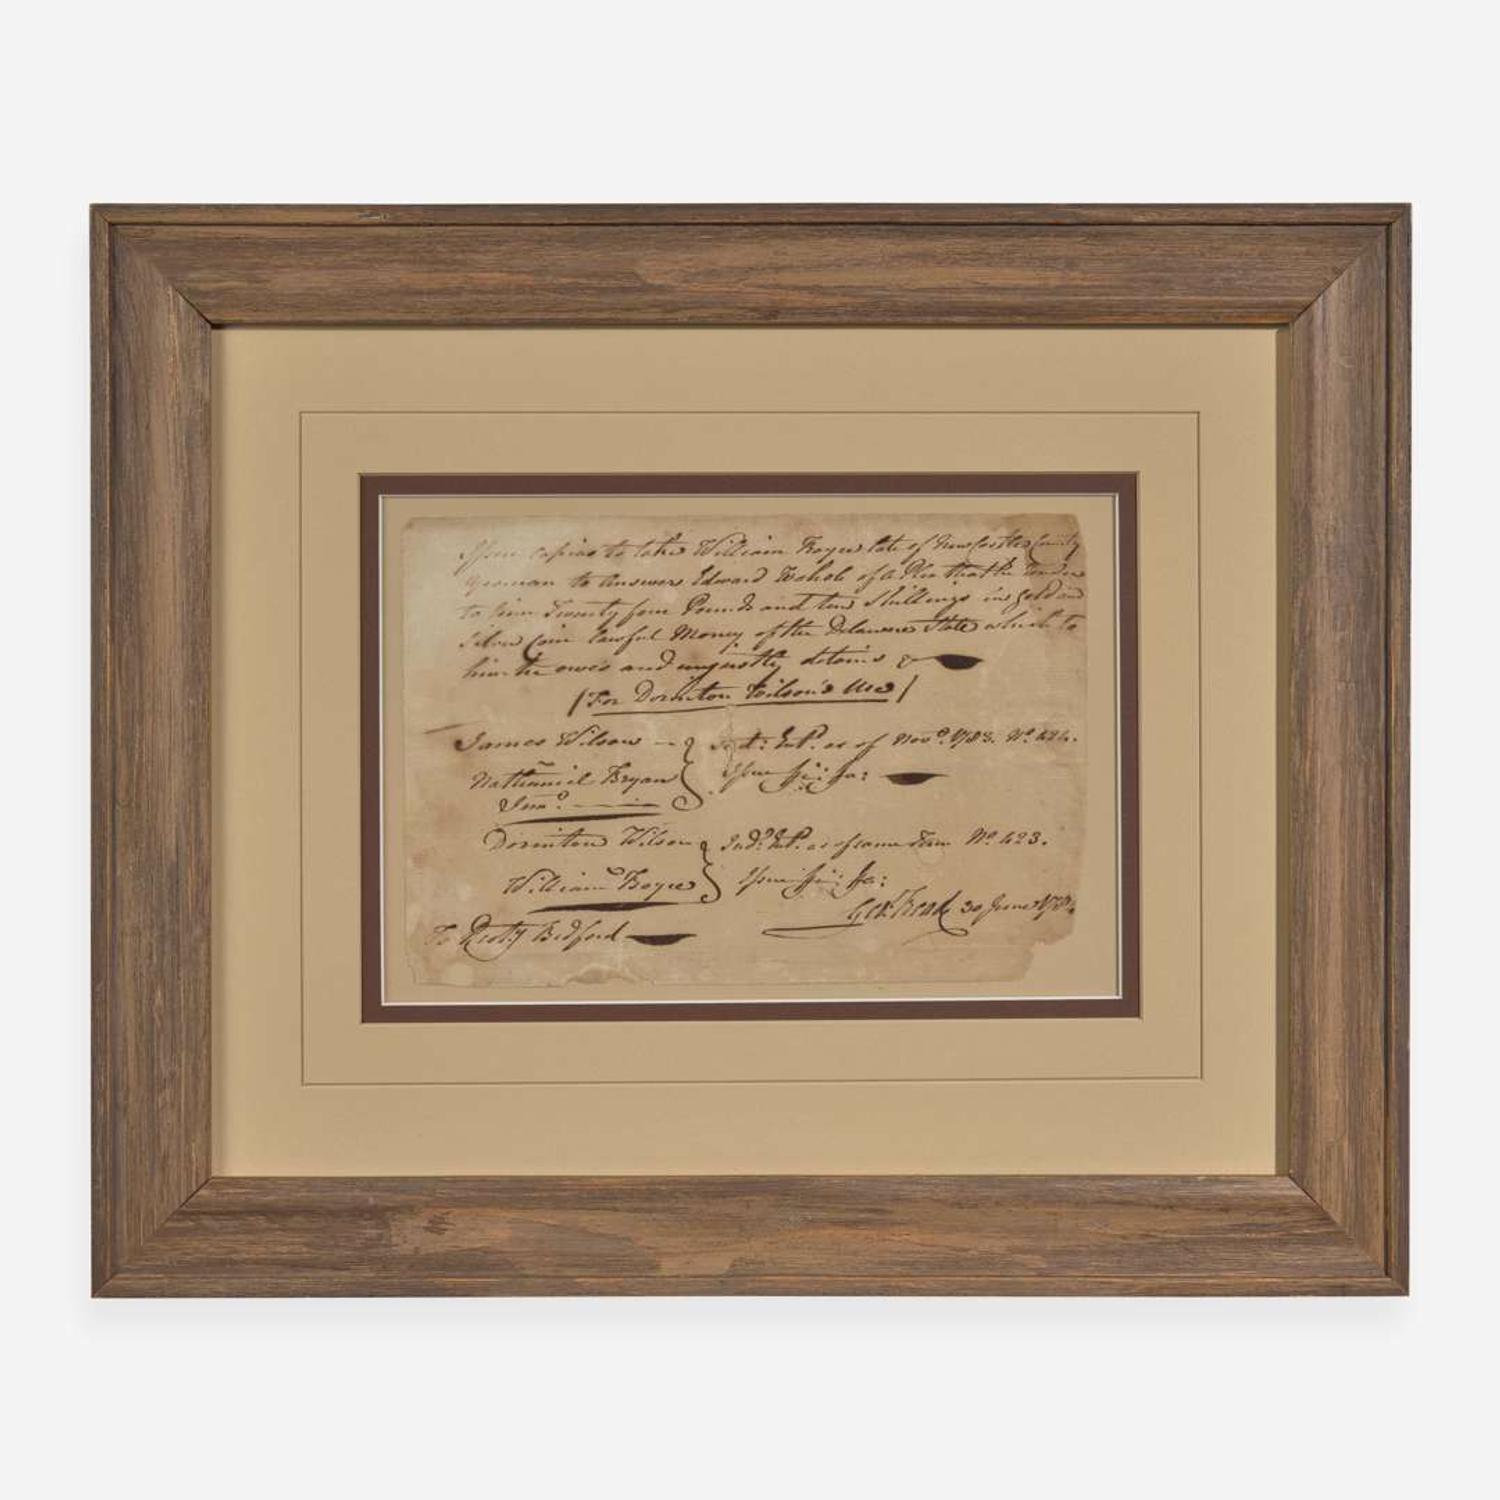 Issue capias to take William Boyce late of New Castle County
Yeoman to answer Edward of a Plea that he render
to him Twenty four Pounds and ten Shillings in gold and
Silver Coin lawful Money of the Delaware State which to
him he owes and unjustly detains &
(For Dorinton Wilson's Use)
James Wilson Entd. as of Novr. 1783. No. 424.
Nathaniel Bryan Issue fi: fa:
Junr.
Dorinton Wilson Judt. Entd. as of same Term No. 423.
William Boyce Issue fi: fa:
Geo: Read 30 June 1784
To Bedford